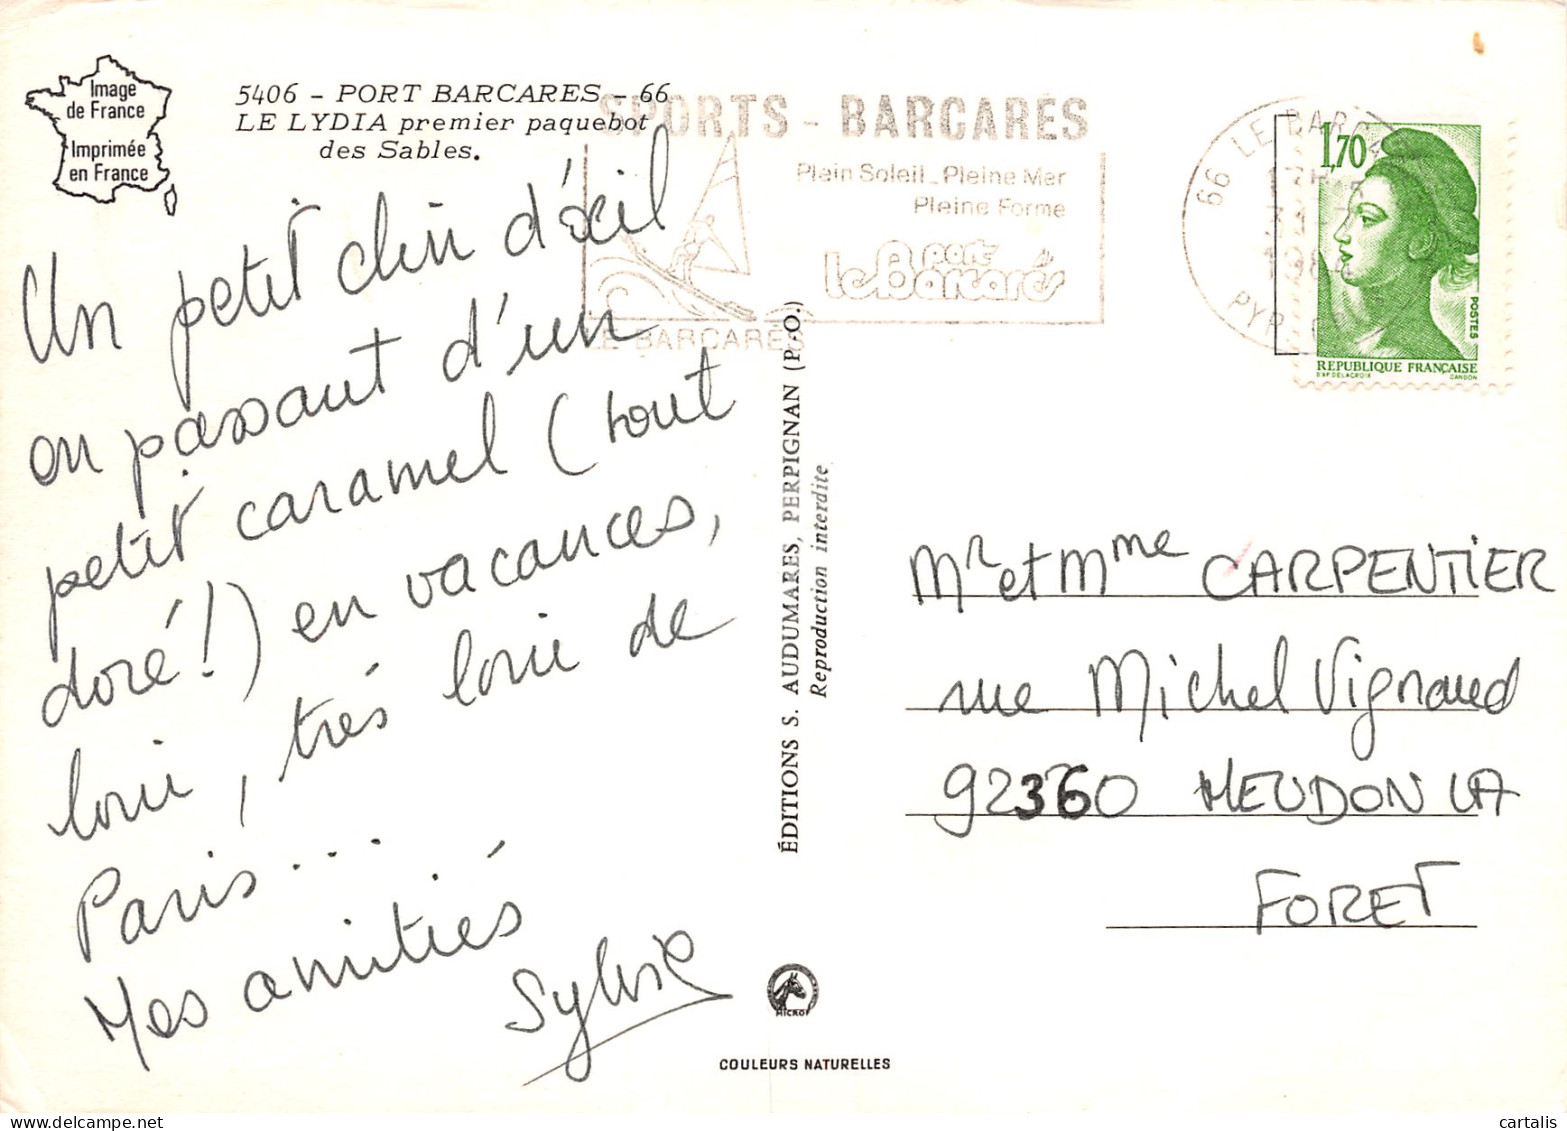 Image
de France
Imprimée
en France
5406 - PORT BARCARES - 66
LE LYDIA premier paquebot
des Sables.
Un petit clin d'œil
en passant d'un
petit caramel (tout
doré!) en vacances,
loin, très loin de
Paris...
Mes amitiés
Sylvie
SPORTS - BARCARÉS
Plein Soleil - Pleine Mer
Pleine Forme
port
le Barcarés
LE BARCARÉS
ÉDITIONS S. AUDUMARES, PERPIGNAN (P.-O.)
Reproduction interdite
66 LE BARCARES
PYR.
1,70
POSTES
RÉPUBLIQUE FRANÇAISE
D'AP. DELACROIX
GANDON
Mr et Mme CARPENTIER
rue Michel Vignaud
92360 MEUDON LA
FORET
MICRO
COULEURS NATURELLES
cartalis